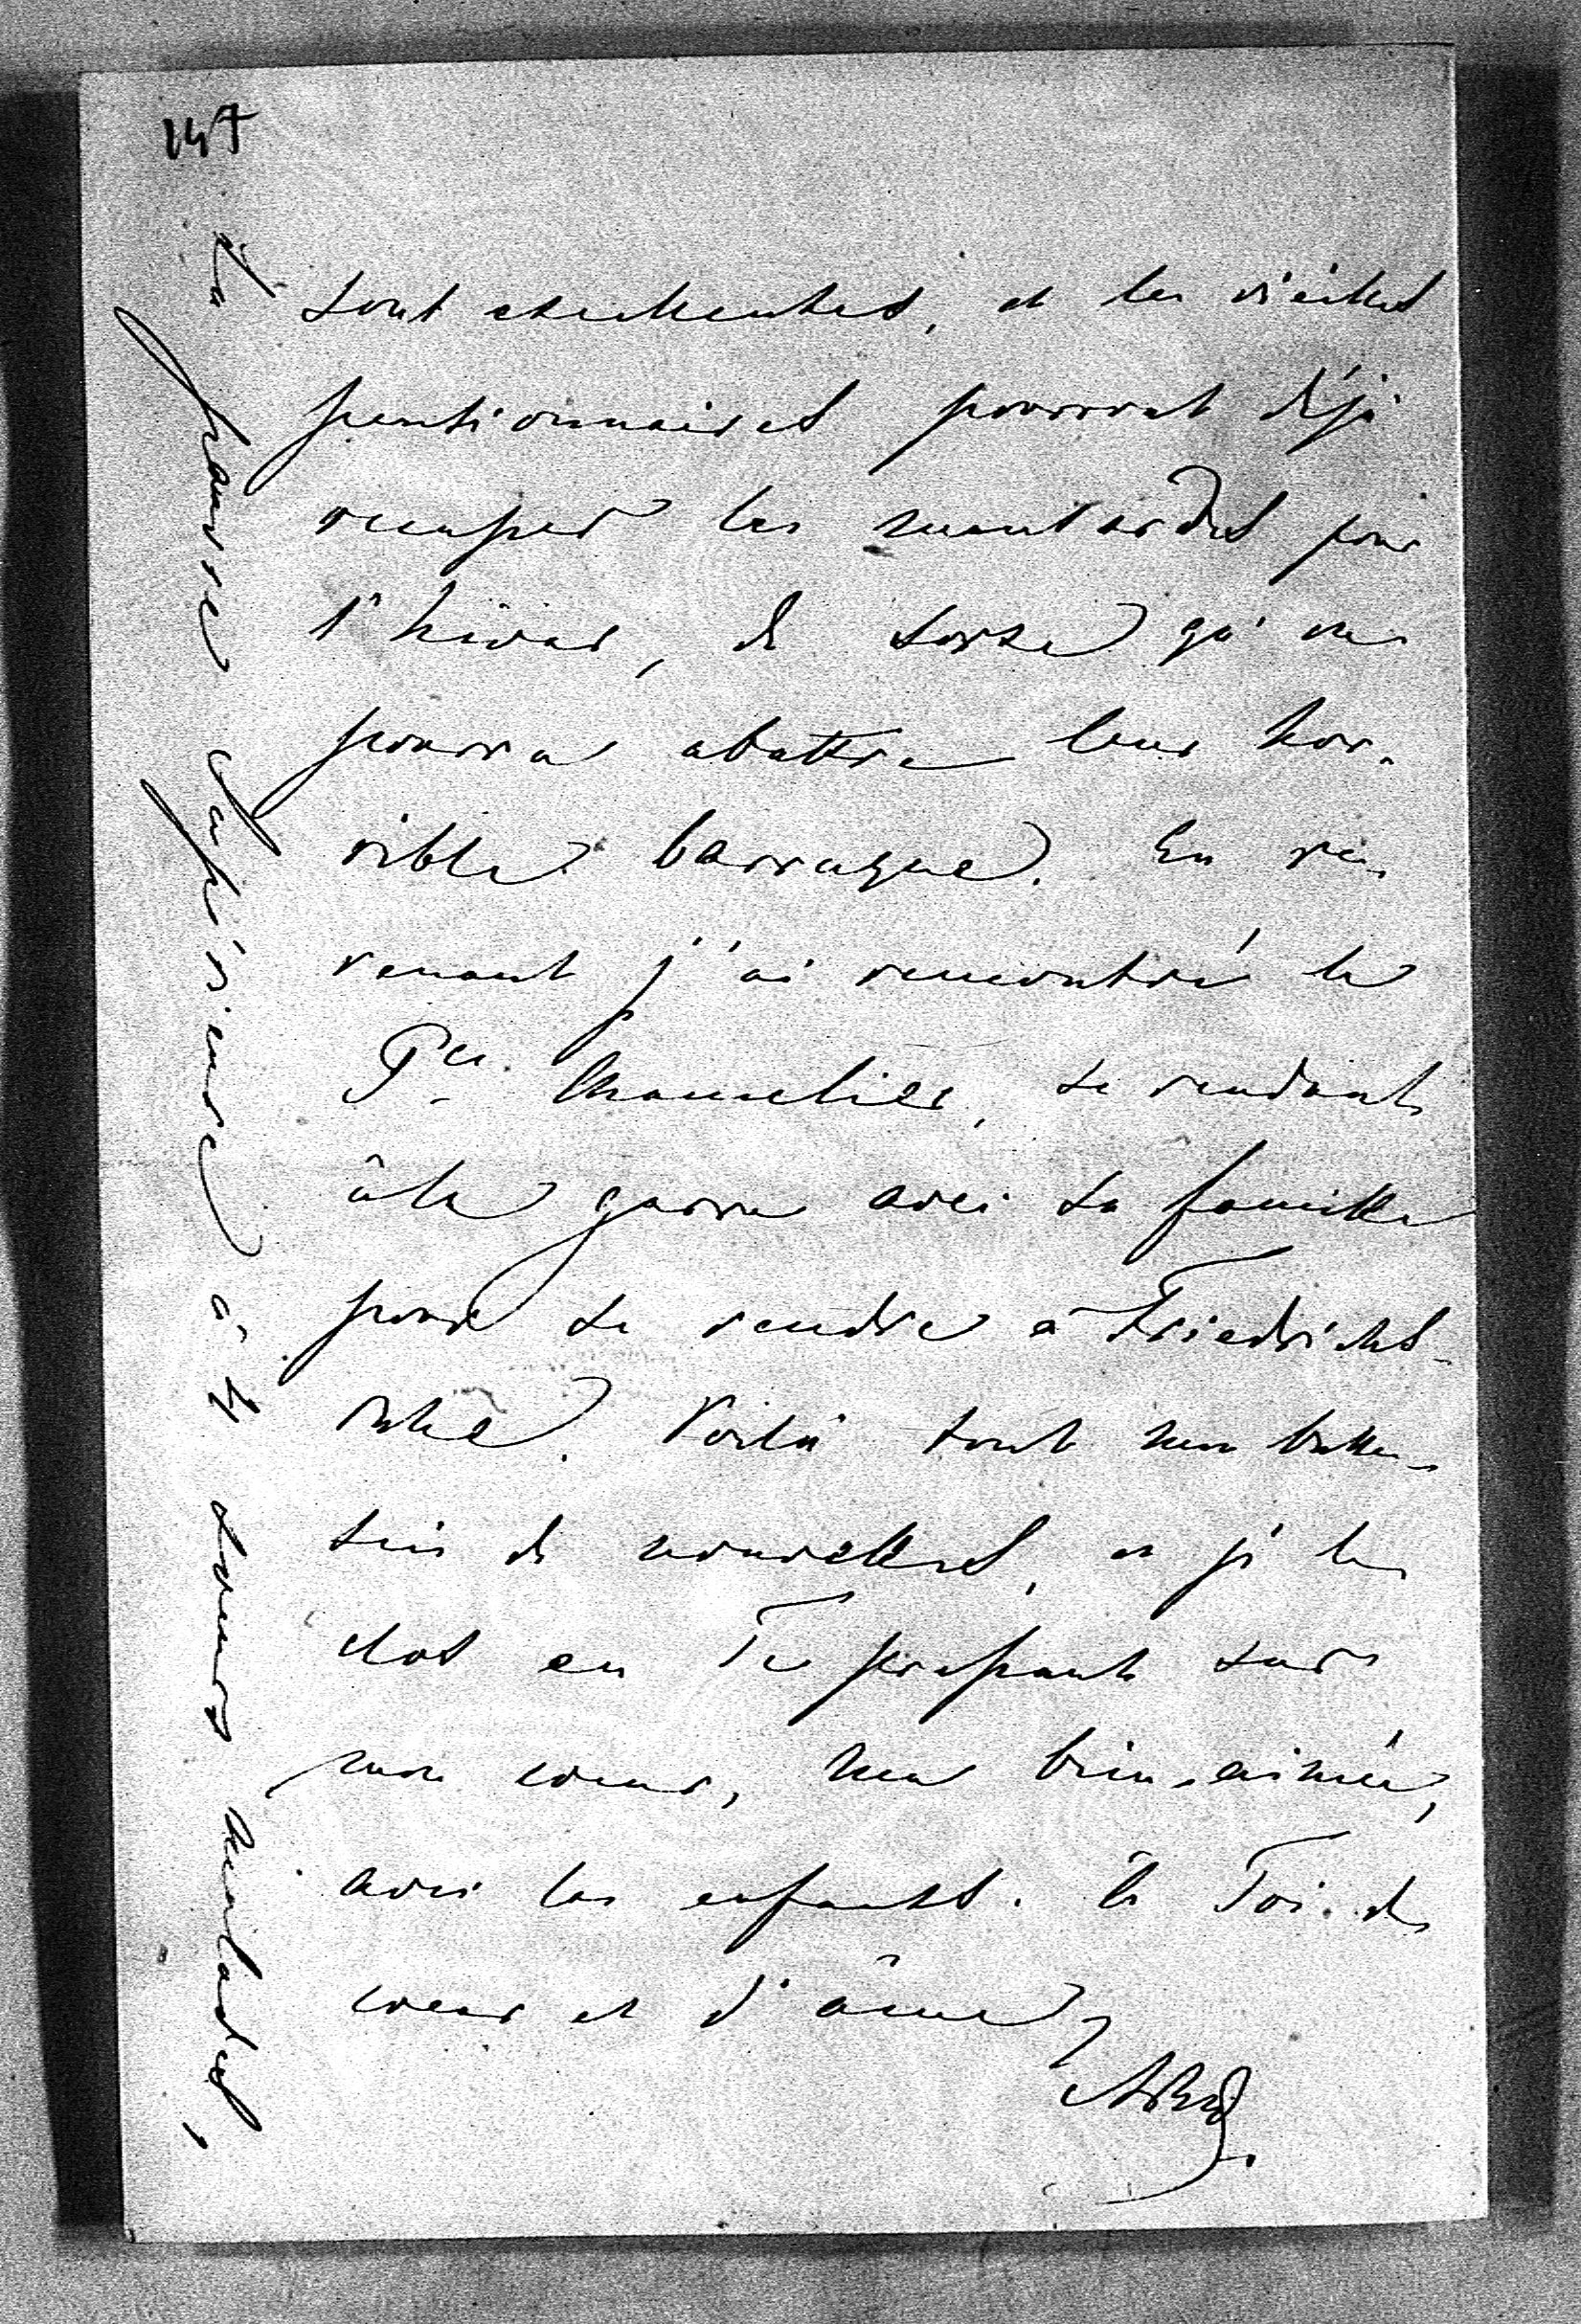 147
sont excellentes, et les vieilles
pensionnaires pourront déjà
occuper les mansardes pour
l'hiver, de sorte qu'on
pourra abattre leur hor-
rible barraque. En re-
venant j'ai rencontré le
Pce. Chancelier, se rendant
à la garre avec sa famille
pour se rendre à Friedrichs-
ruhe. Voilà tout mon bulle-
tin de nouvelles, et je le
clos en Te pressant sur
mon coeur, ma bien-aimée,
avec les enfants. à Toi de
coeur et d'âme
La pauvre supérieure a 4 soeurs malades,